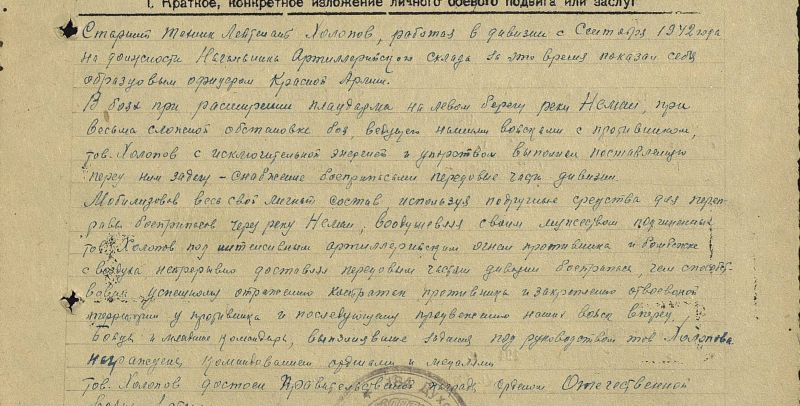 I. Краткое, конкретное изложение личного боевого подвига или заслуг
Старший техник Лейтенант Холопов, работая в дивизии с Сентября 1942 года
на должности Начальника Артиллерийского склада за это время показал себя
образцовым офицером Красной Армии.
В боях при расширении плацдарма на левом берегу реки Неман, при
весьма сложной обстановке боя, ведущего нашими войсками с противником,
тов. Холопов с исключительной энергией и упорством выполнял поставленную
перед ним задачу – снабжение боеприпасами передовые части дивизии.
Мобилизовав весь свой личный состав используя подручные средства для переп-
равы боеприпасов через реку Неман, воодушевляя своим мужеством подчиненных
тов. Холопов под интенсивным артиллерийским огнем противника и бомбежке
с воздуха непрерывно доставлял передовым частям дивизии боеприпасы, чем способст-
вовал успешному отражению контратак противника и закреплению отвоеванной
территории у противника и последующему продвижению наших войск вперед.
Бойцы и младшие командиры, выполнявшие задания под руководством тов Холопова
награждены командованием орденами и медалями
тов. Холопов достоен Правительственной награды орденом Отечественной